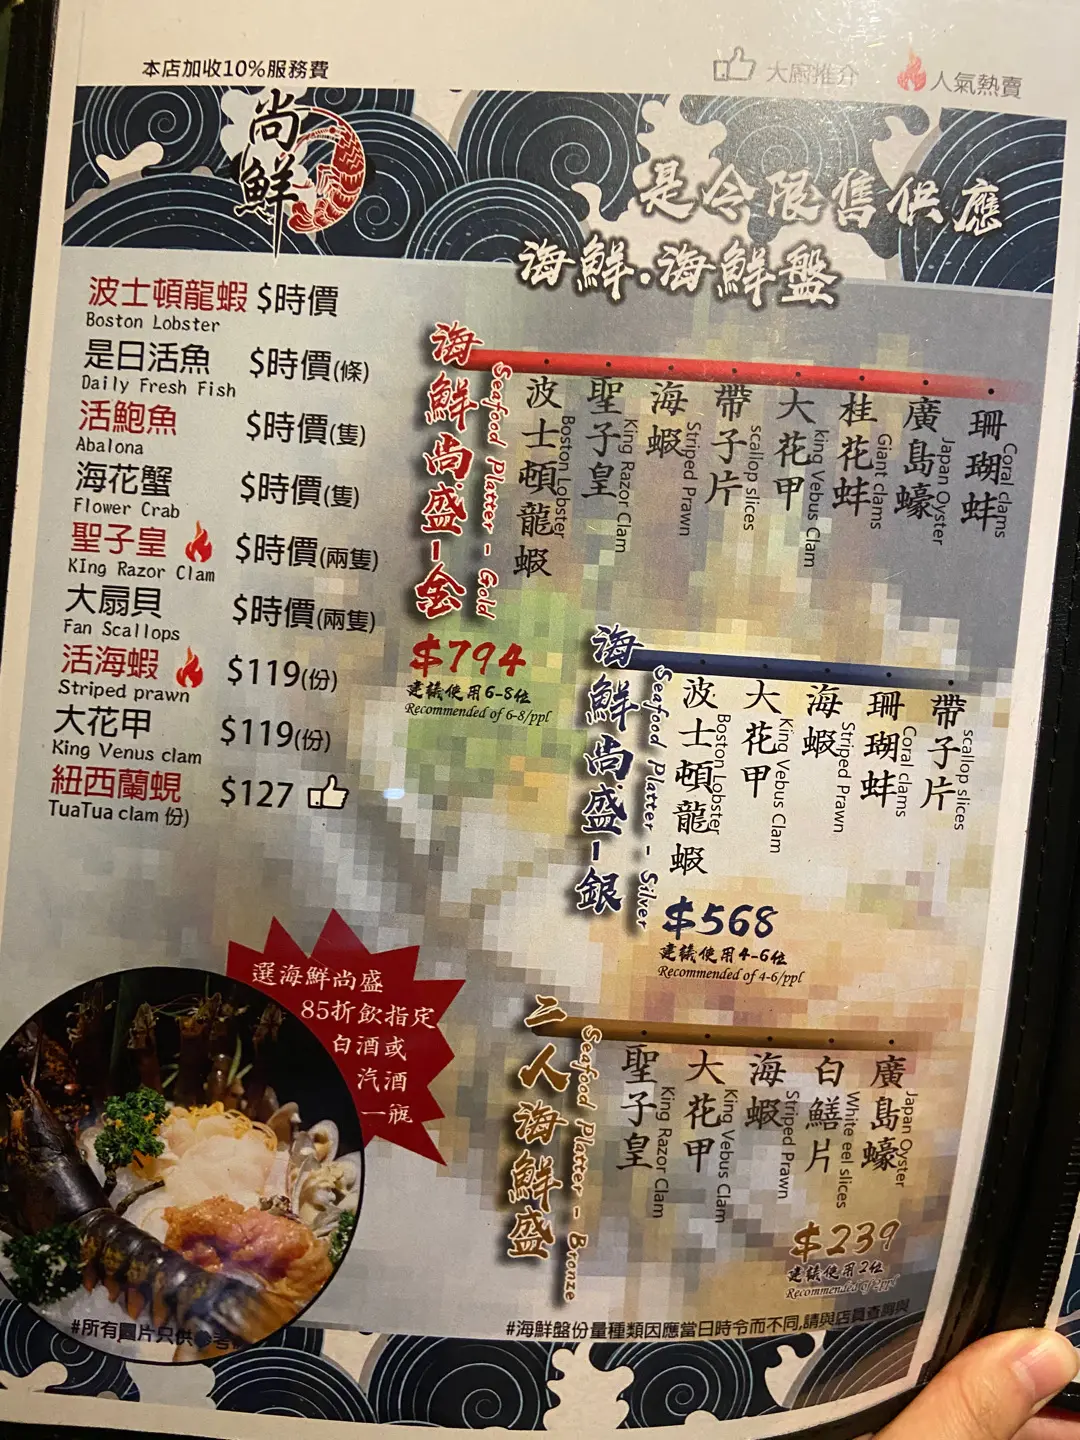 本店加收10%服務費
大廚推介
人氣熱賣
尚鮮
是令限售供應
海鮮·海鮮盤
波士頓龍蝦 $時價
Boston Lobster
是日活魚 $時價(條)
Daily Fresh Fish
活鮑魚 $時價(隻)
Abalona
海花蟹 $時價(隻)
Flower Crab
聖子皇 $時價(兩隻)
KIng Razor Clam
大扇貝 $時價(兩隻)
Fan Scallops
活海蝦 $119(份)
Striped prawn
大花甲 $119(份)
King Venus clam
紐西蘭蜆 $127
TuaTua clam 份)
海鮮尚盛-金
Seafood Platter - Gold
波士頓龍蝦
Boston Lobster
聖子皇
King Razor Clam
海蝦
Striped Prawn
帶子片
scallop slices
大花甲
king Vebus Clam
桂花蚌
Giant clams
廣島蠔
Japan Oyster
珊瑚蚌
Coral clams
$794
建議使用6-8位
Recommended of 6-8/ppl
海鮮尚盛-銀
Seafood Platter - Silver
波士頓龍蝦
Boston Lobster
大花甲
King Vebus Clam
海蝦
Striped Prawn
珊瑚蚌
Coral clams
帶子片
scallop slices
$568
建議使用4-6位
Recommended of 4-6/ppl
二人海鮮盛
Seafood Platter - Bronze
聖子皇
King Razor Clam
大花甲
King Vebus Clam
海蝦
Striped Prawn
白鱔片
White eel slices
廣島蠔
Japan Oyster
$239
建議使用2位
Recommended of 2/ppl
選海鮮尚盛
85折飲指定
白酒或
汽酒
一瓶
#所有圖片只供參考
#海鮮盤份量種類因應當日時令而不同,請與店員查詢